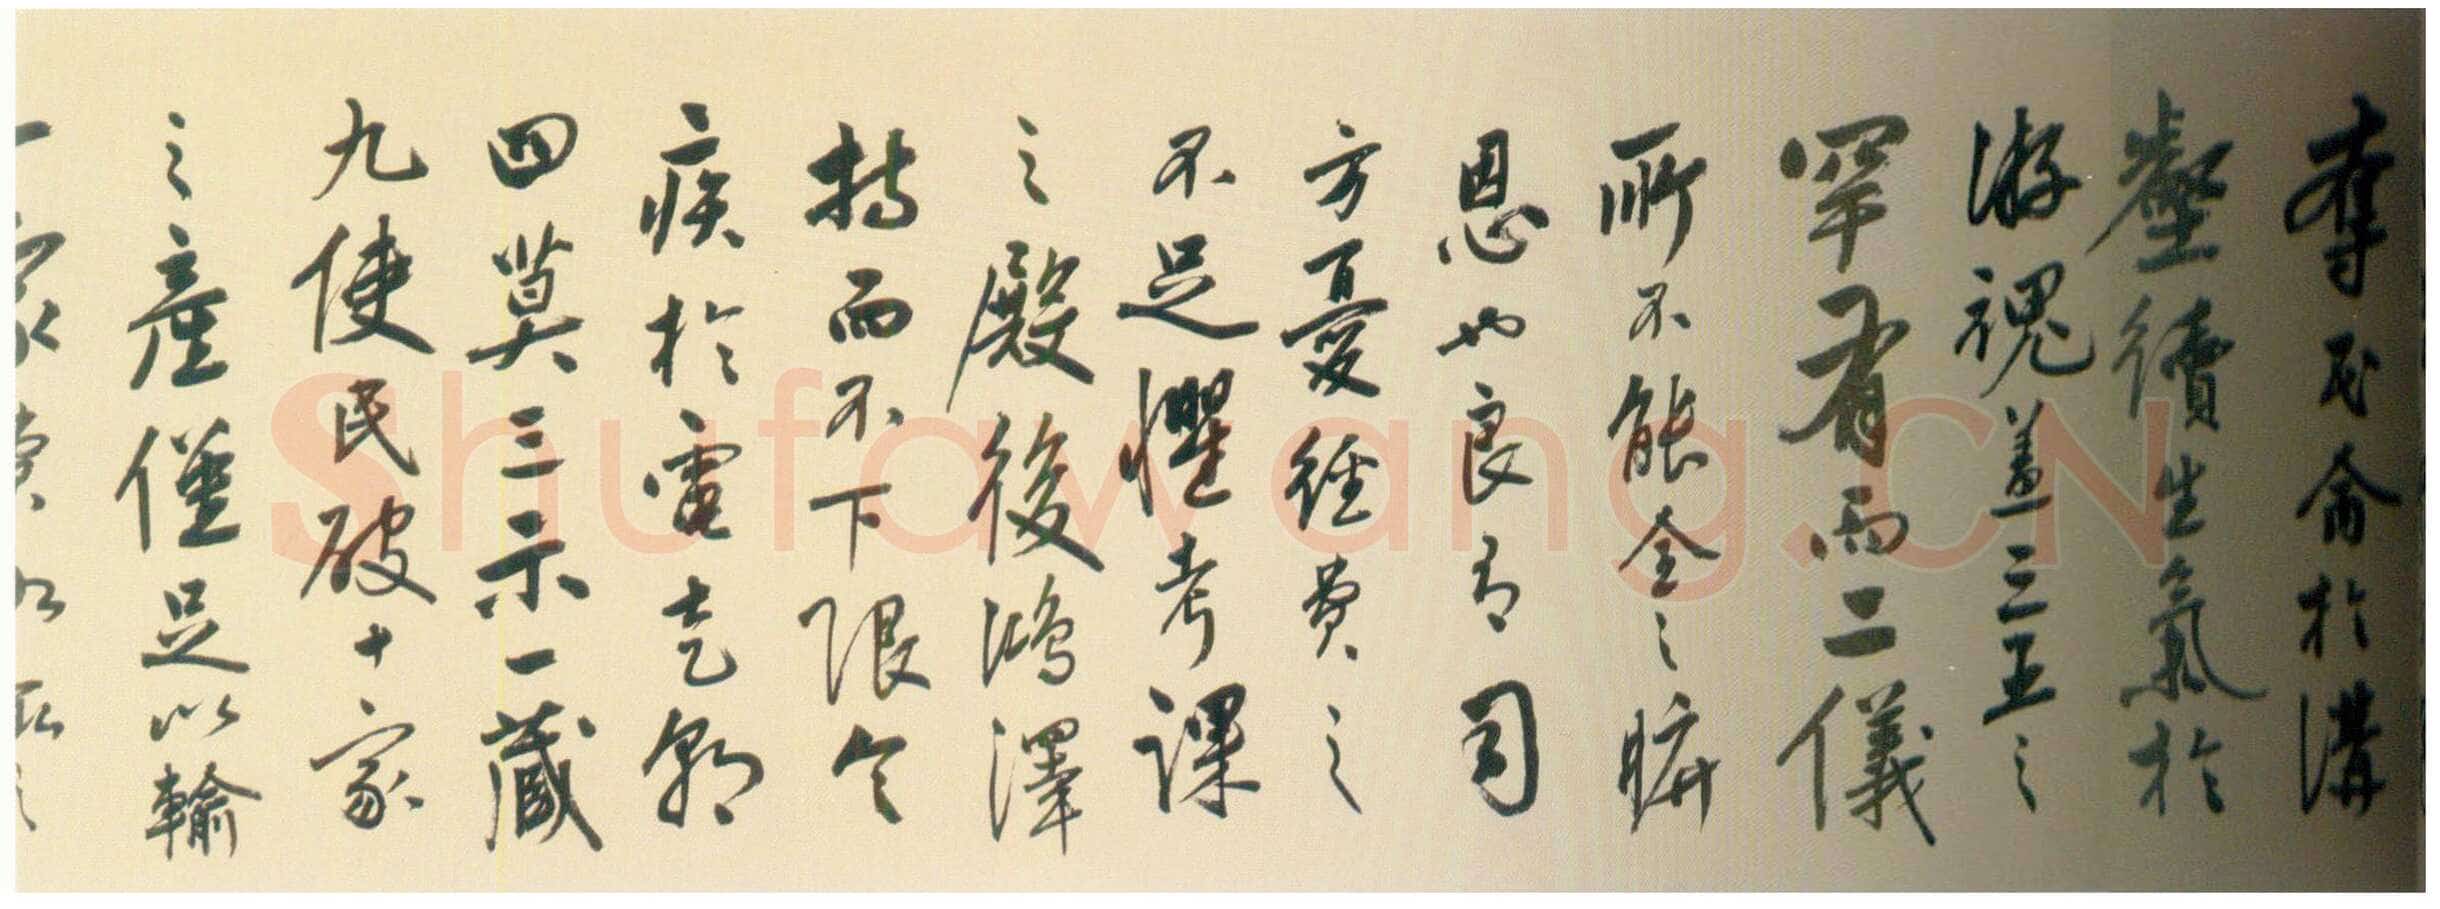 奪民命於溝
壑續生氣於
游魂蓋三王之
罕有而二儀
所不能全之曠
恩也良有司
方憂經費之
不足懼考課
之殿後鴻澤
持而不下限令
疾於電走朝
四莫三示一藏
九使民破十家
之產僅足以輸
Shufawang.CN